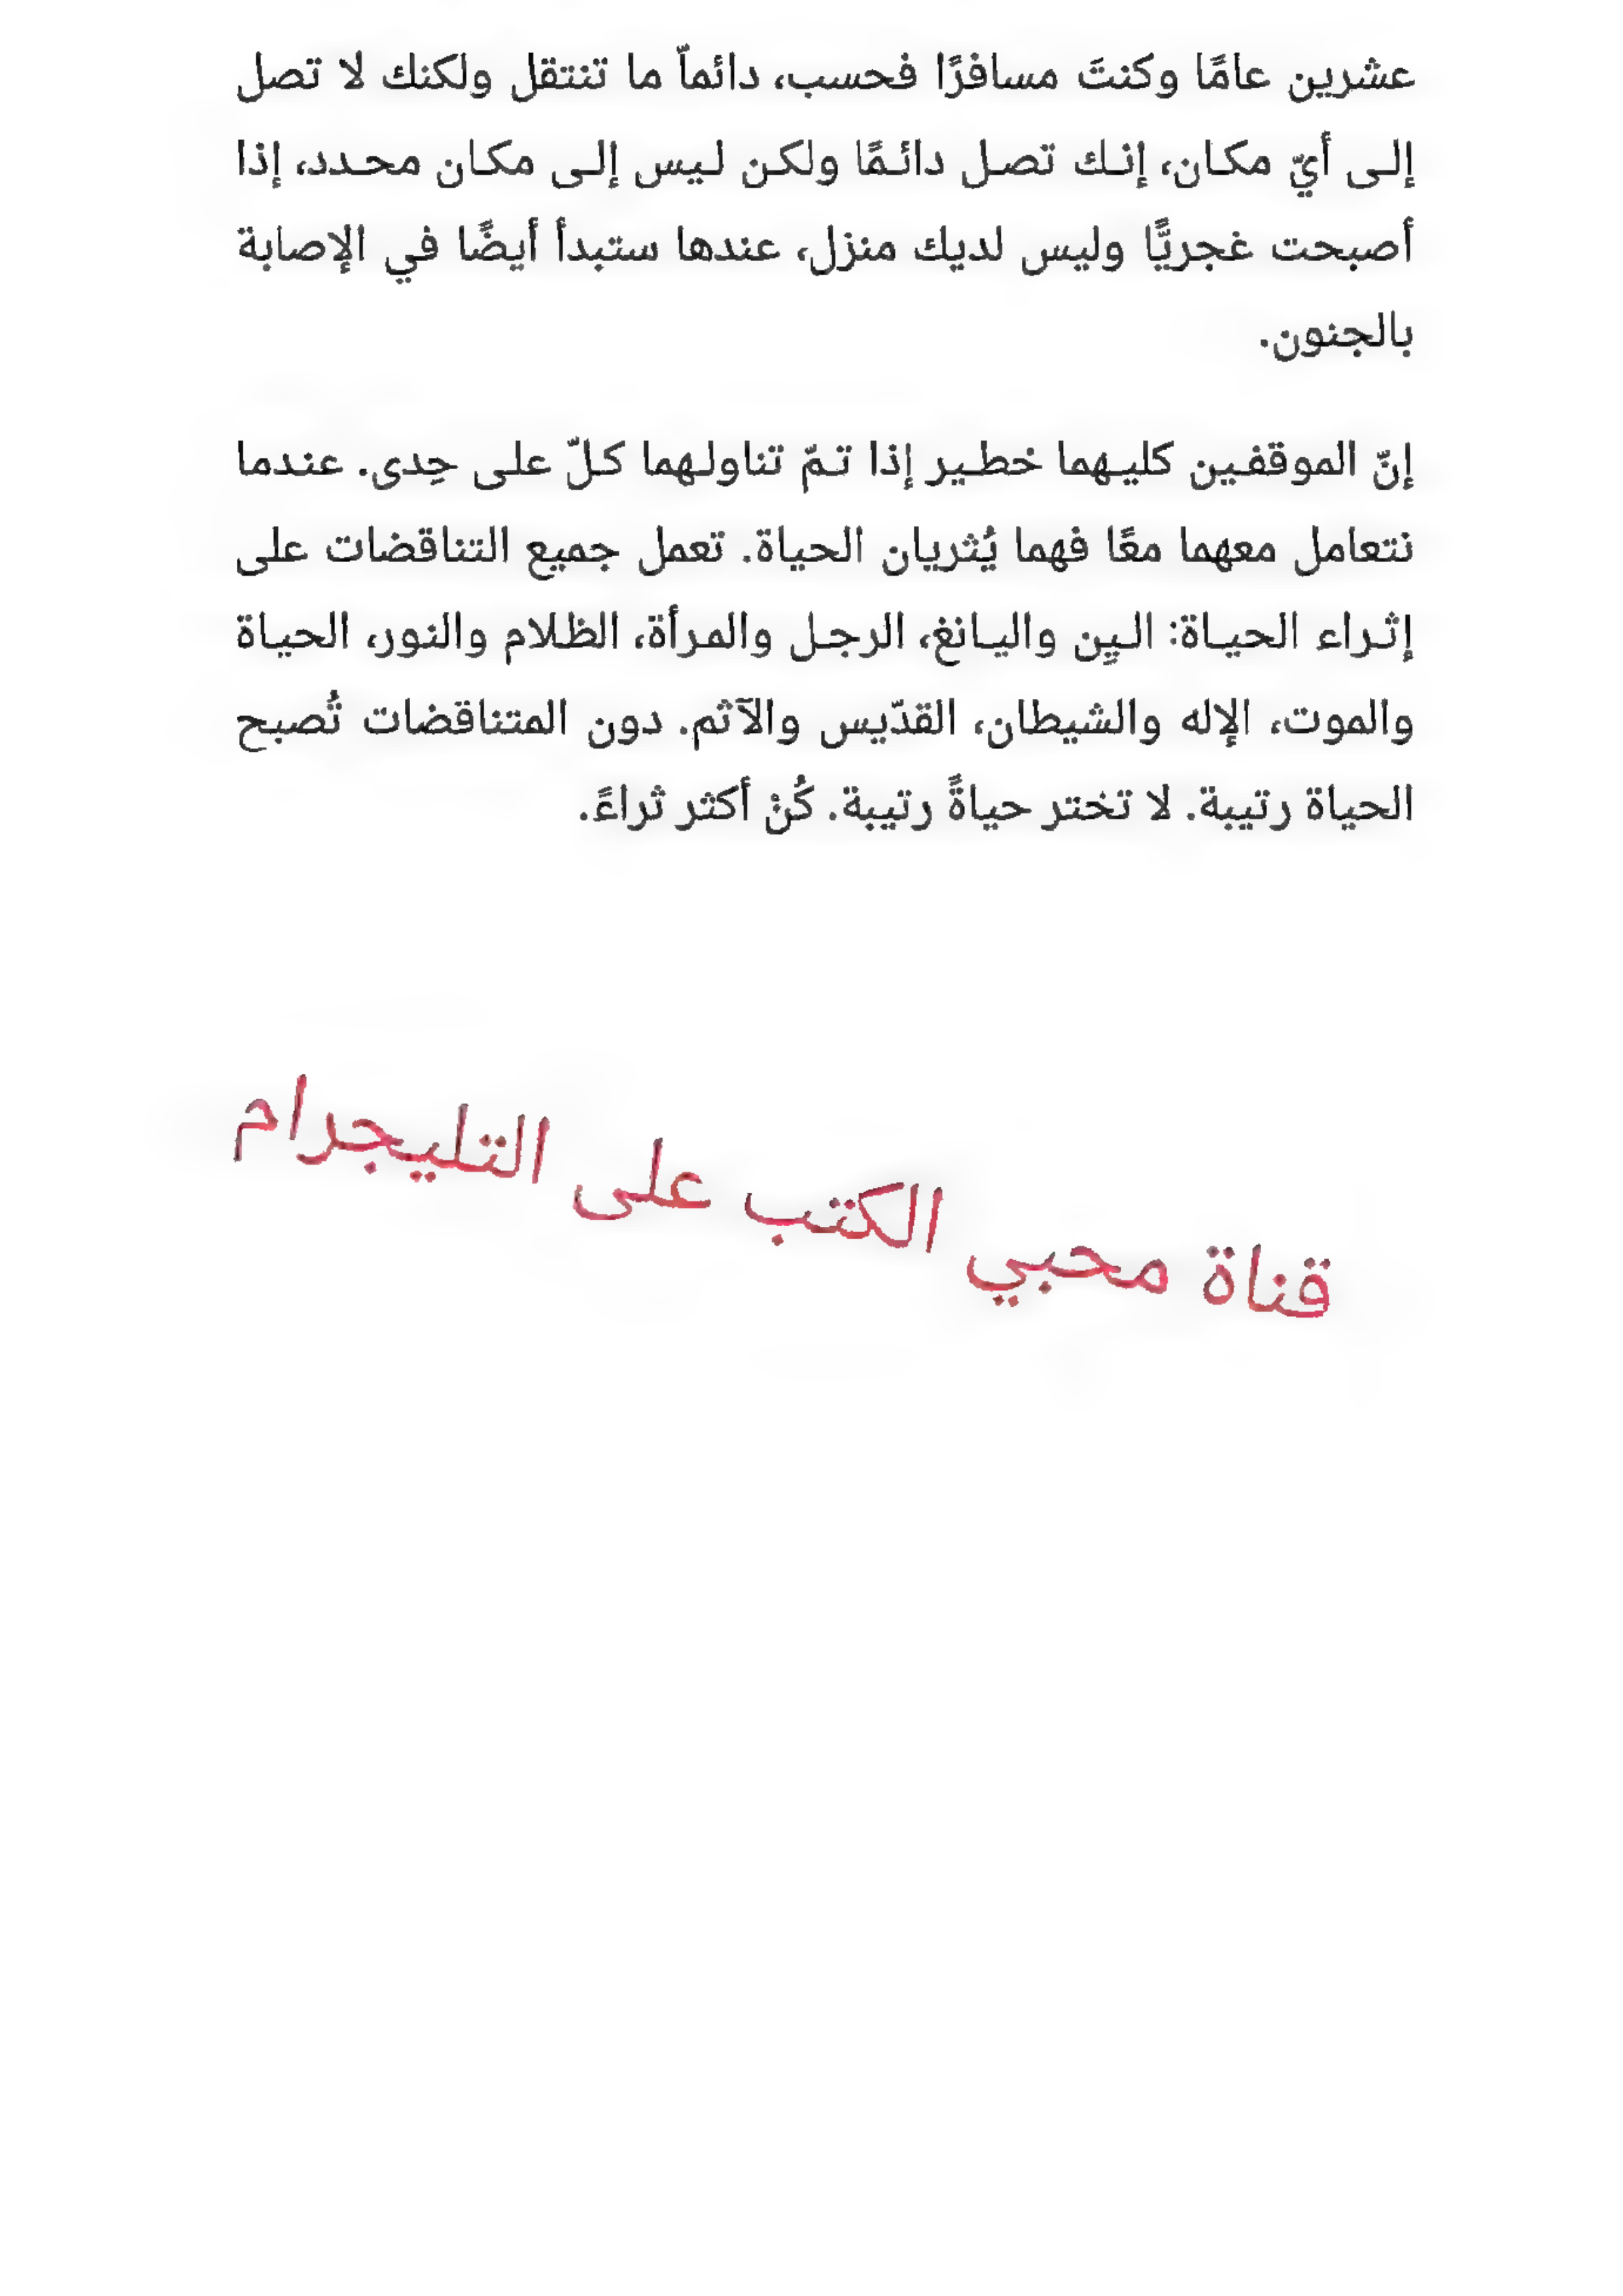 عشرين عامًا وكنتَ مسافرًا فحسب، دائماّ ما تنتقل ولكنك لا تصل
إلى أيّ مكان، إنك تصل دائمًا ولكن ليس إلى مكان محدد، إذا
أصبحت غجريًّا وليس لديك منزل، عندها ستبدأ أيضًا في الإصابة
بالجنون.
إنّ الموقفين كليهما خطير إذا تمّ تناولهما كلّ على حِدى. عندما
نتعامل معهما معًا فهما يُثريان الحياة. تعمل جميع التناقضات على
إثراء الحياة: اليِن واليانغ، الرجل والمرأة، الظلام والنور، الحياة
والموت، الإله والشيطان، القدّيس والآثم. دون المتناقضات تُصبح
الحياة رتيبة. لا تختر حياةً رتيبة. كُنْ أكثر ثراءً.
قناة محبي الكتب على التليجرام